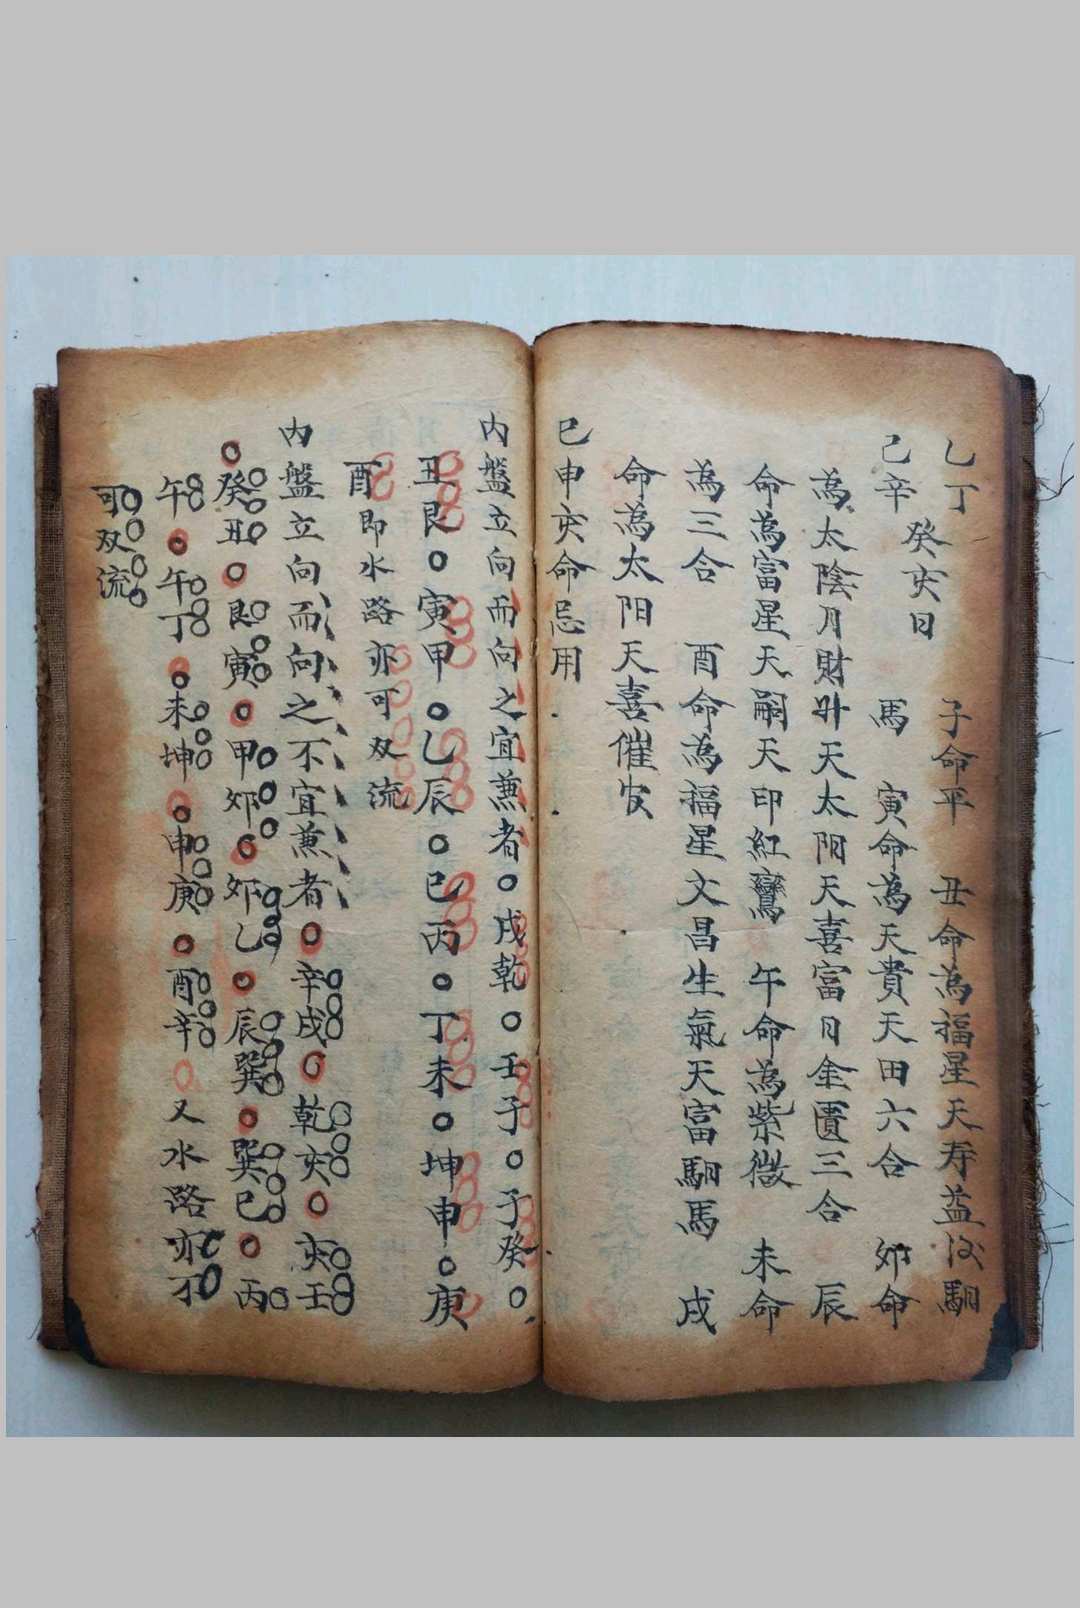 乙丁
己辛
癸亥日
子命平　丑命為福星天寿益汝駙
馬　寅命為天貴天田六合　夘命
為太陰月財升天太阳天喜富日金匱三合　辰
命為富星天嗣天印紅鸞　午命為紫微　未命
為三合　酉命為福星文昌生氣天富駙馬　戌
命為太阳天喜催官
巳申亥命忌用
内盤立向而向之宜兼者○戌乾○壬子○子癸○
丑艮○寅甲○乙辰○巳丙○丁未○坤申○庚
酉即水路亦可双流
内盤立向而向之不宜兼者○辛戌○乾亥○亥壬
○癸丑○艮寅○甲夘○夘乙○辰巽○巽巳○丙
午○午丁○未坤○申庚○酉辛○又水路亦不
可双流